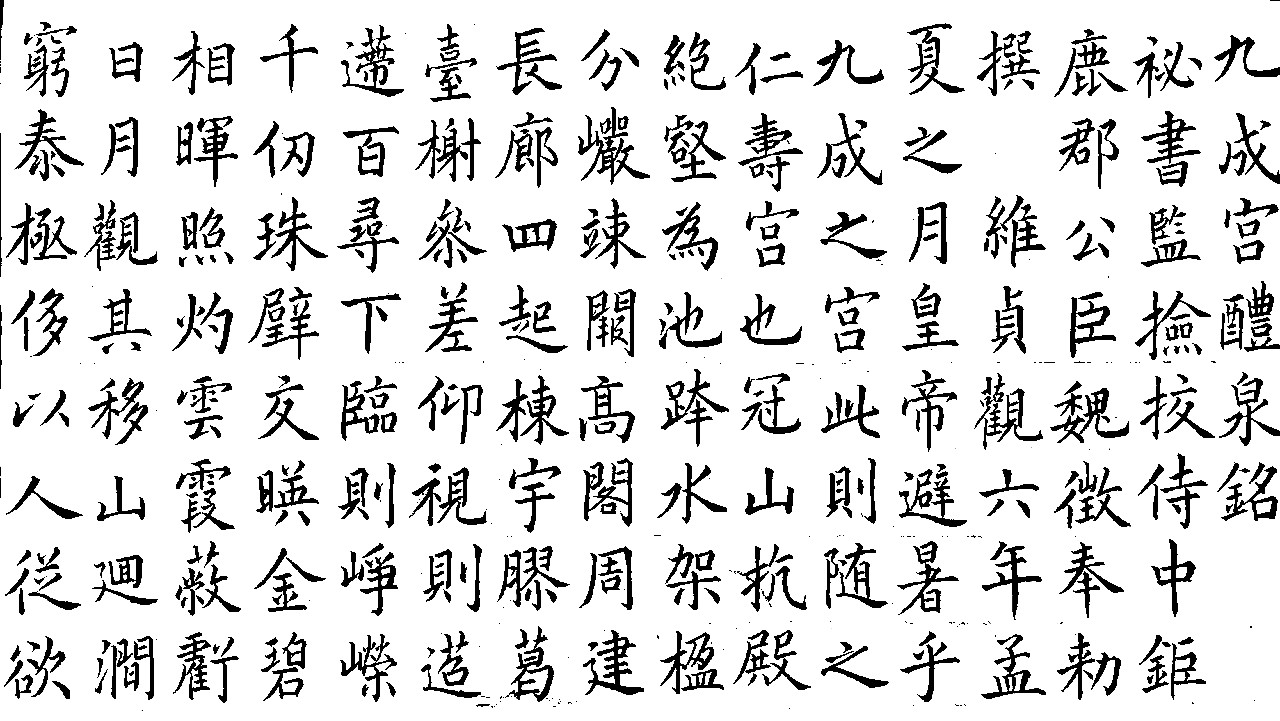 九成宮醴泉銘
祕書監撿挍侍中鉅
鹿郡公臣魏徵奉勅
撰 維貞觀六年孟
夏之月皇帝避暑乎
九成之宮此則随之
仁壽宮也冠山抗殿
絶壑為池跨水架楹
分巗竦闕高閣周建
長廊四起棟宇膠葛
臺榭參差仰視則迢
遰百尋下臨則崢嶸
千仞珠璧交暎金碧
相暉照灼雲霞蔽虧
日月觀其移山迴澗
窮泰極侈以人從欲